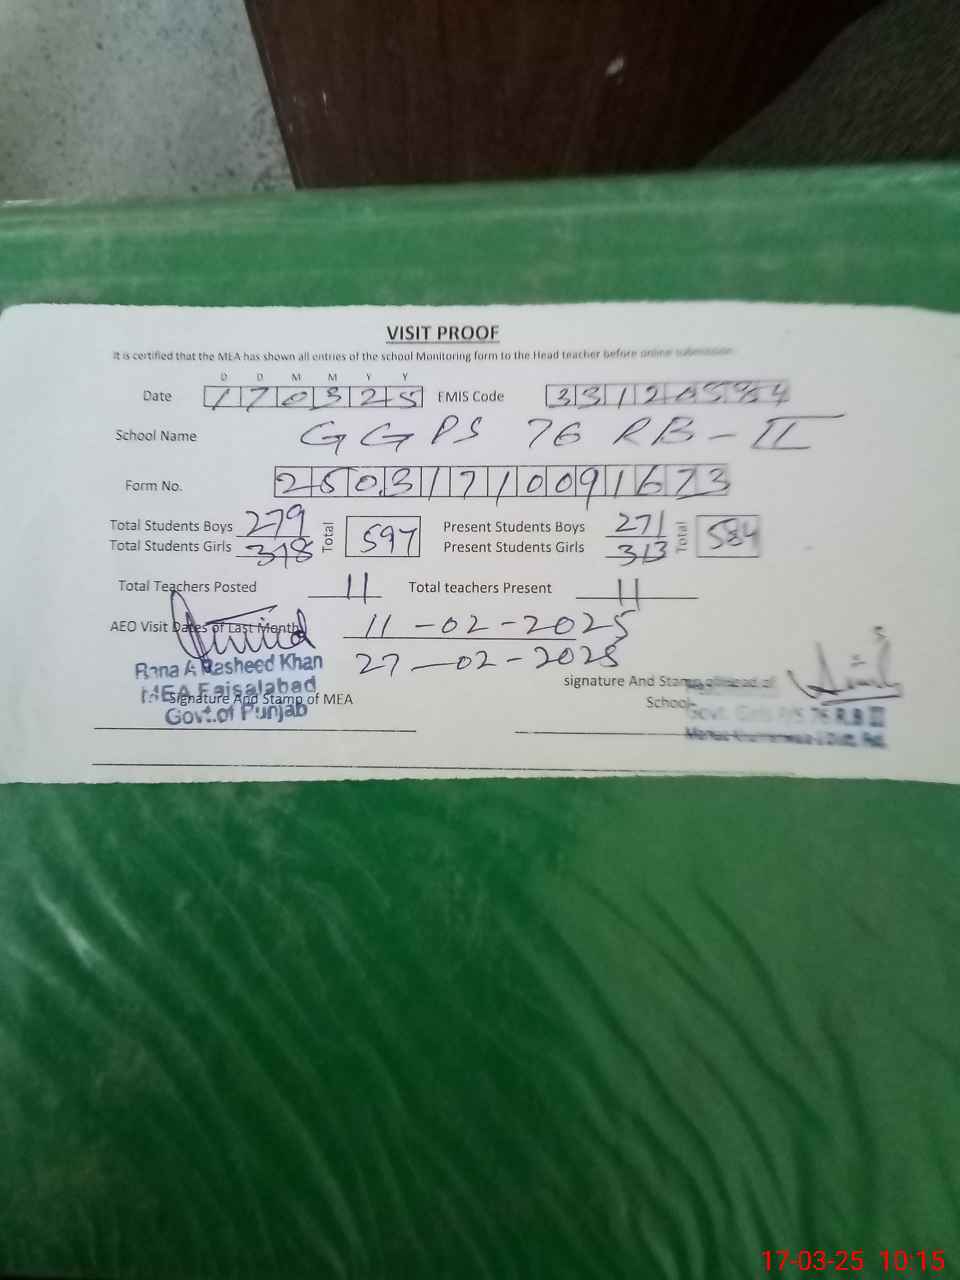 VISIT PROOF
It is certified that the MEA has shown all entries of the school Monitoring form to the Head teacher before online submission
D D M M Y Y
Date 170325 EMIS Code
School Name GGPS 76 RB-II
Form No. 25031710091673
Total Students Boys 279 Total 597 Present Students Boys 271 Total 584
Total Students Girls 318 Present Students Girls 313
Total Teachers Posted 11 Total teachers Present 11
AEO Visit Dates of Last Month 11-02-2025
27-02-2025
Rana A Rasheed Khan
MEA Faisalabad
Govt.of Punjab
Signature And Stamp of MEA
signature And Stamp of Head of
School
Govt. Girls P/S 76 R.B II
17-03-25 10:15